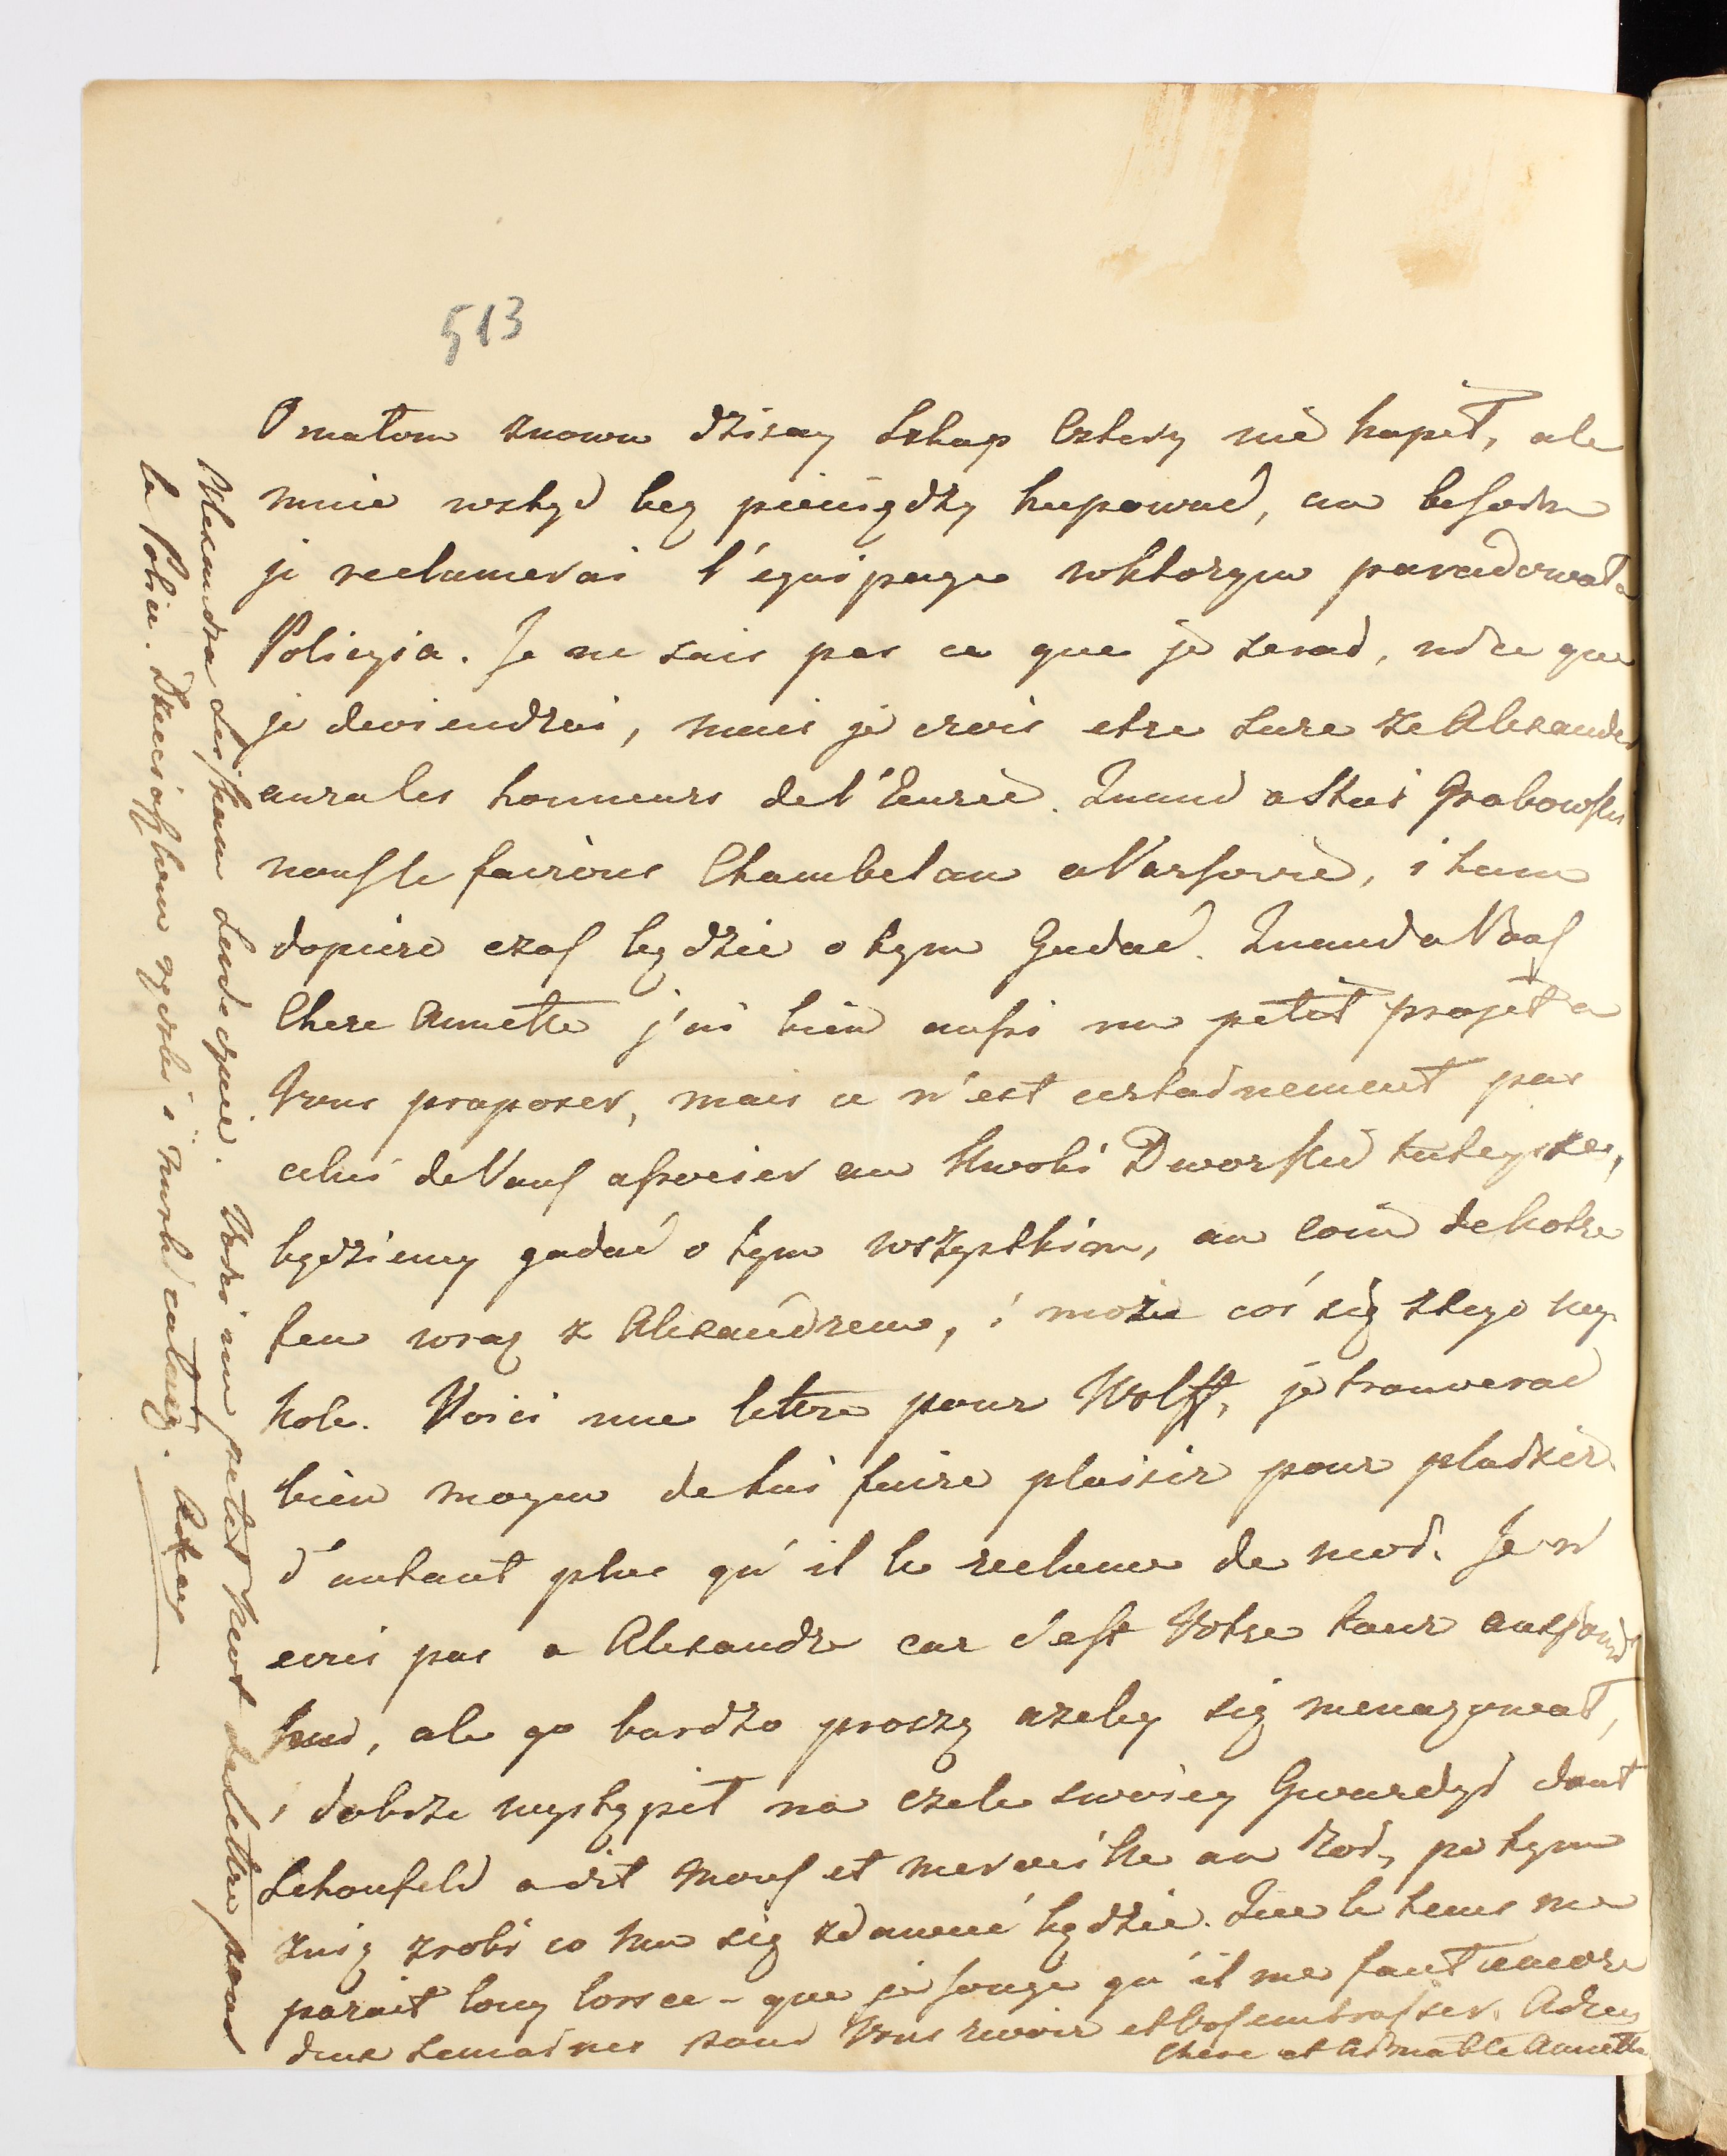 513
O małom znowu dzisay Szkap Cztery nie kupił, ale
mnie wstyd bez pieniędzy kupować, au besoin
je reclamerai l'équipage wktorym paradowała
Policyia. Je ne sais pas ce que je serai, ni ce que
je deviendrai, mais je crois etre sure ze Alexander
aura les honneurs de l'Eurie. Quand a Stas Grabowski
nous le fairons Chambelan a Varsovie, i tam
dopiero czas będzie o tym Gadać. Quand a Vous
Chere Annette j'ai bien aussi un petit projet a
Vous proposer, mais ce n'est certainement pas
celui de Vous associer au Dworskie tuteysze,
będziemy gadać o tym wszystkim, au coin de notre
feu wraz z Alexandrem, i może coś się ztego
Voici une lettre pour Wolff, je trouverai
bien moyen de lui faire plaisir pour plaisir
d'autant plus qu'il le reclame de moi. Je n'
ecris pas a Alexandre car c'est Votre tour
hui, ale go bardzo proszę azeby się menazował,
i dobrze wystąpił na czele swoiey Gwardyi dont
Schonfeld a dit Mons et merveille au Roi, po tym
znią zrobi co mu się zdawać będzie. Que le tems me
parait long lorsce-que je songe qu'il me faut encore
deux semaines sans Vous revoir et Vos embrasser. Adieu
chere et Aimable Annette
Alexandra sciskam Serdecznie. Voici un petit mot de lettre pour
la Police. Dzieci sciskam i caluię.